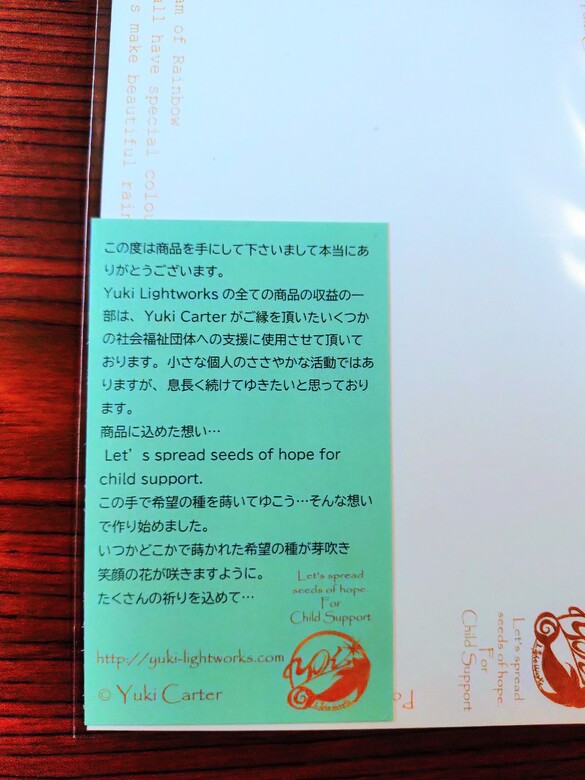 am of Rainbow
all have special colou
s make beautiful rain
この度は商品を手にして下さいまして本当にあ
りがとうございます。
Yuki Lightworks の全ての商品の収益の一
部は、Yuki Carter がご縁を頂いたいくつか
の社会福祉団体への支援に使用させて頂いて
おります。小さな個人のささやかな活動ではあ
りますが、息長く続けてゆきたいと思っており
ます。
商品に込めた想い…
Let's spread seeds of hope for
child support.
この手で希望の種を蒔いてゆこう…そんな想い
で作り始めました。
いつかどこかで蒔かれた希望の種が芽吹き
笑顔の花が咲きますように。
たくさんの祈りを込めて…
Let's spread
seeds of hope
For
Child Support
http://yuki-lightworks.com
© Yuki Carter
YUKI
Let's spread
seeds of hope
For
Child Support
Po